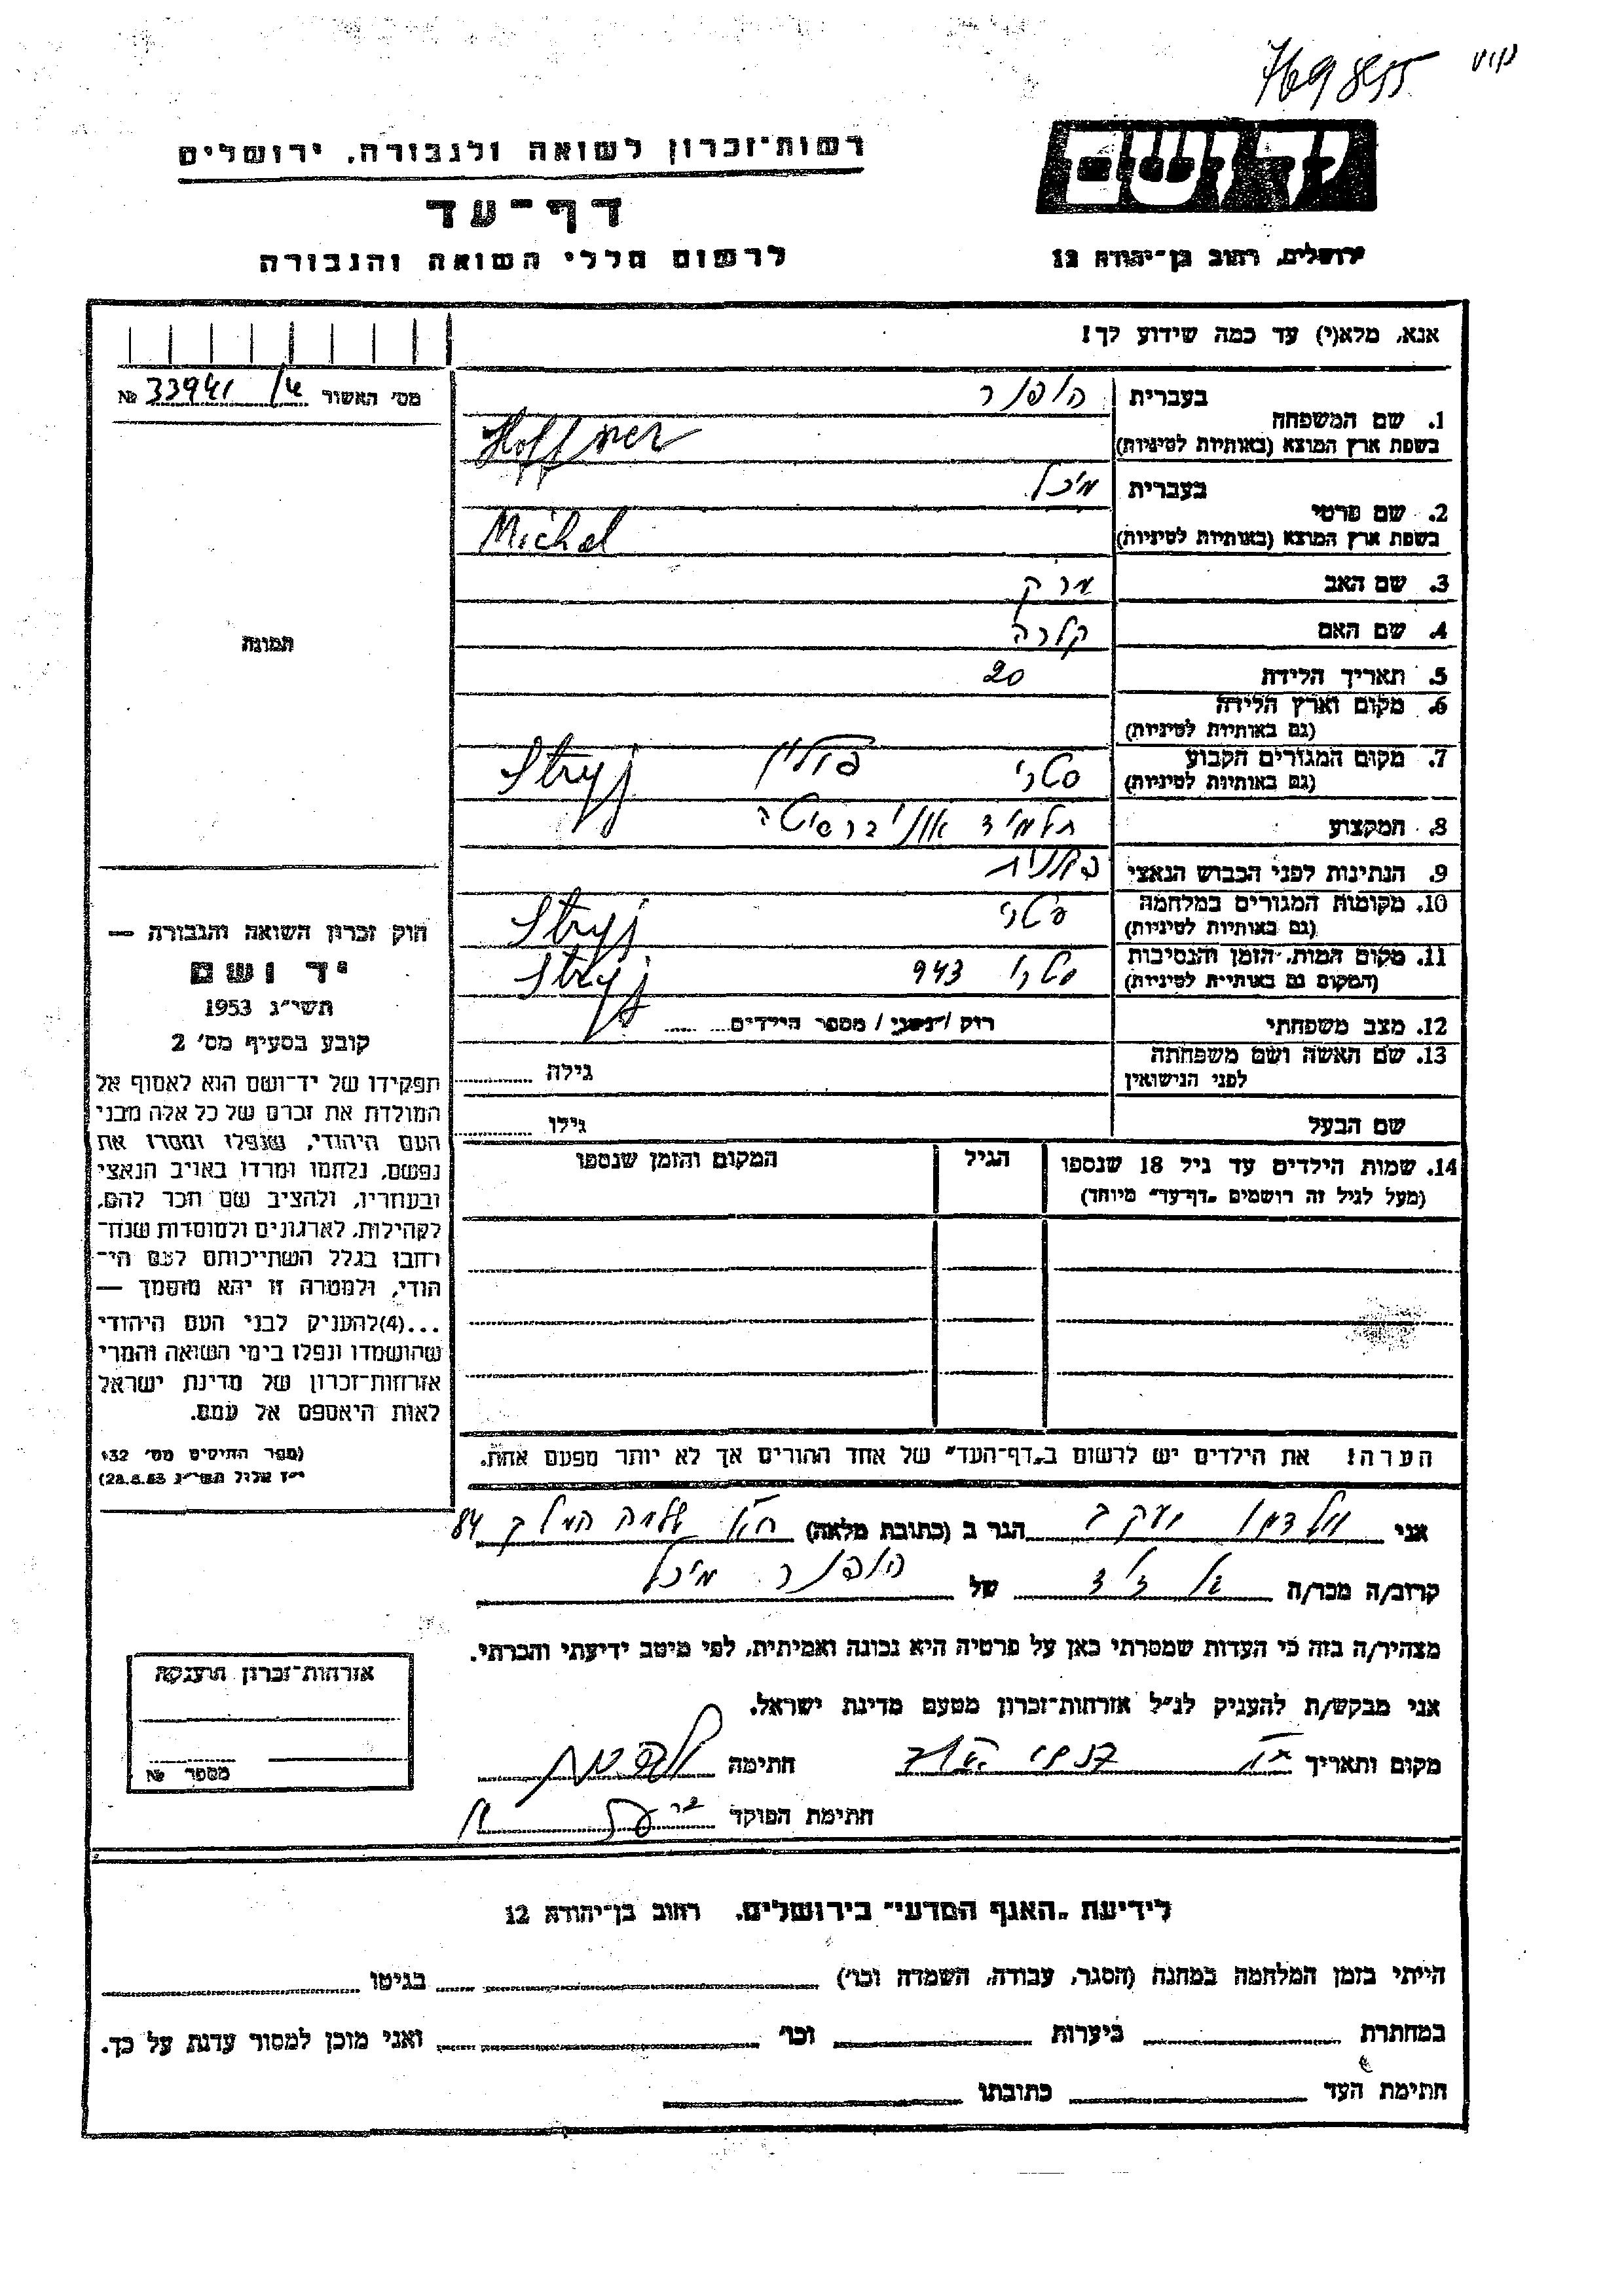 769855
רשות־זכרון לשואה ולגבורה, ירושלים
דף־עד
לרשום חללי השואה והגבורה
יד ושם
ירושלים, רחוב בן־יהודה 12
אנא, מלא(י) עד כמה שידוע לך!
מס׳ האשור 33941/4 №
תמונה
1. שם המשפחה
בעברית הופנר
בשפת ארץ המוצא (באותיות לטיניות) Hoffner
2. שם פרטי
בעברית מיכל
בשפת ארץ המוצא (באותיות לטיניות) Michal
3. שם האב מרק
4. שם האם קלרה
5. תאריך הלידה 20
6. מקום וארץ הלידה
(גם באותיות לטיניות)
7. מקום המגורים הקבוע סטרי פולין Stryj
(גם באותיות לטיניות)
8. המקצוע תלמיד אוניברסיטה
9. הנתינות לפני הכבוש הנאצי פולנית
10. מקומות המגורים במלחמה סטרי Stryj
(גם באותיות לטיניות)
11. מקום המות, הזמן והנסיבות סטרי 943 Stryj
(המקום גם באותיות לטיניות)
12. מצב משפחתי רוק / נשוי / מספר הילדים
13. שם האשה ושם משפחתה גילה
לפני הנישואין
שם הבעל גילו
14. שמות הילדים עד גיל 18 שנספו הגיל המקום והזמן שנספו
(מעל לגיל זה רושמים „דף־עד״ מיוחד)
הערה: את הילדים יש לרשום ב„דף־העד״ של אחד ההורים אך לא יותר מפעם אחת.
חוק זכרון השואה והגבורה —
יד ושם
תשי״ג 1953
קובע בסעיף מס׳ 2
תפקידו של יד־ושם הוא לאסוף אל
המולדת את זכרם של כל אלה מבני
העם היהודי, שנפלו ומסרו את
נפשם, נלחמו ומרדו באויב הנאצי
ובעוזריו, ולהציב שם וזכר להם,
לקהילות, לארגונים ולמוסדות שנח־
רחבו בגלל השתייכותם לעם הי־
הודי, ולמטרה זו יהא מוסמך —
...(4) להעניק לבני העם היהודי
שהושמדו ונפלו בימי השואה והמרי
אזרחות־זכרון של מדינת ישראל
לאות היאספם אל עמם.
(ספר החוקים מס׳ 132
י״ז אלול תשי״ג 28.8.53)
אני ולדמן יעקב הגר ב (כתובת מלאה) שלמה המלך 84
קרוב/ה מכר/ה של הופנר מיכל
מצהיר/ה בזה כי העדות שמסרתי כאן על פרטיה היא נכונה ואמיתית, לפי מיטב ידיעתי והכרתי.
אני מבקש/ת להעניק לנ״ל אזרחות־זכרון מטעם מדינת ישראל.
מקום ותאריך חתימה
חתימת הפוקד
אזרחות־זכרון הוענקה
מספר №
לידיעת „האגף המדעי״ בירושלים, רחוב בן־יהודה 12
הייתי בזמן המלחמה במחנה (הסגר, עבודה, השמדה וכו׳) בגיטו
במחתרת ביערות וכו׳ ואני מוכן למסור עדות על כך.
חתימת העד כתובתו